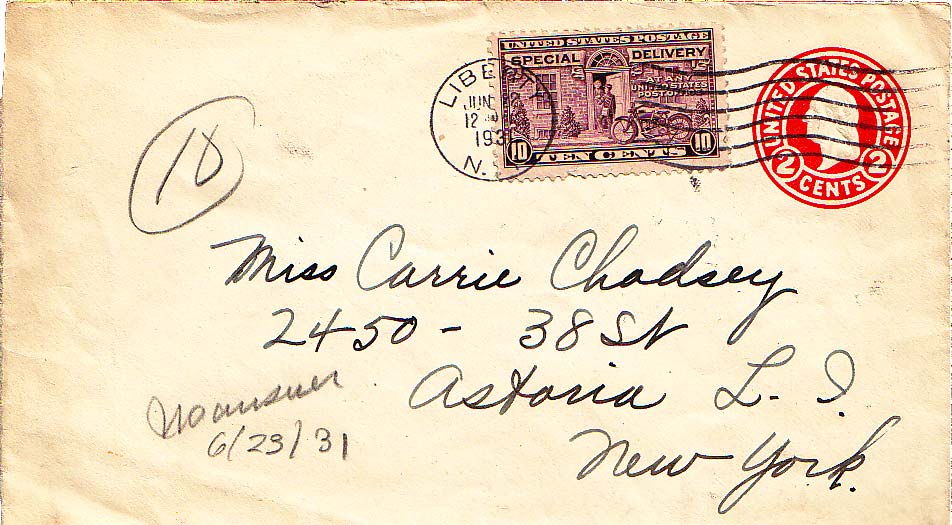 UNITED STATES POSTAGE
SPECIAL DELIVERY
AT ANY
UNITED STATES
10 TEN CENTS 10
LIBERTY
JUN
12
193
N.
UNITED STATES POSTAGE
2 CENTS 2
10
Miss Carrie Chadsey
2450 - 38 St
Astoria L. I.
New York.
No answer
6/23/31